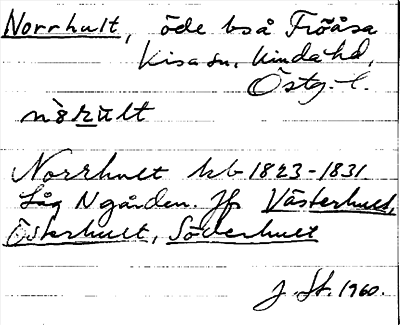 Norrhult, öde bså Fröåsa
Kisa sn. Kinda hd,
Östg. l.
Norrhult kb 1823-1831
Låg N gården. Jfr Västerhult,
Österhult, Söderhult
J. St. 1960.